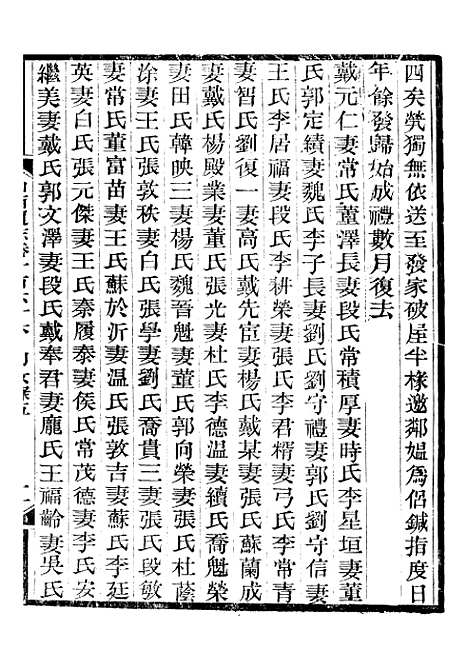 四矣煢獨無依送至發家破屋半椽邀鄰媼爲侶鍼指度日
年餘發歸始成禮數月復去
戴元仁妻常氏董澤長妻段氏常積厚妻時氏李星垣妻董
氏郭定續妻魏氏李子長妻劉氏劉守禮妻郭氏劉守信妻
王氏李居福妻段氏李耕榮妻李氏李君楈妻弓氏李常青
妻智氏劉復一妻高氏戴先宦妻楊氏戴某妻張氏蘇蘭成
妻戴氏楊殿業妻董氏張光妻杜氏李德溫妻續氏喬魁榮
妻田氏韓映三妻楊氏魏晉魁妻董氏郭向榮妻張氏杜蔭
涂妻王氏張敦秩妻白氏張學妻劉氏喬貴三妻張氏段敏
妻常氏董富苗妻王氏蘇於沂妻溫氏張敦吉妻蘇氏李廷
英妻白氏張元傑妻王氏秦履泰妻侯氏常茂德妻李氏安
繼美妻戴氏郭文澤妻段氏戴奉君妻龐氏王福齡妻吳氏